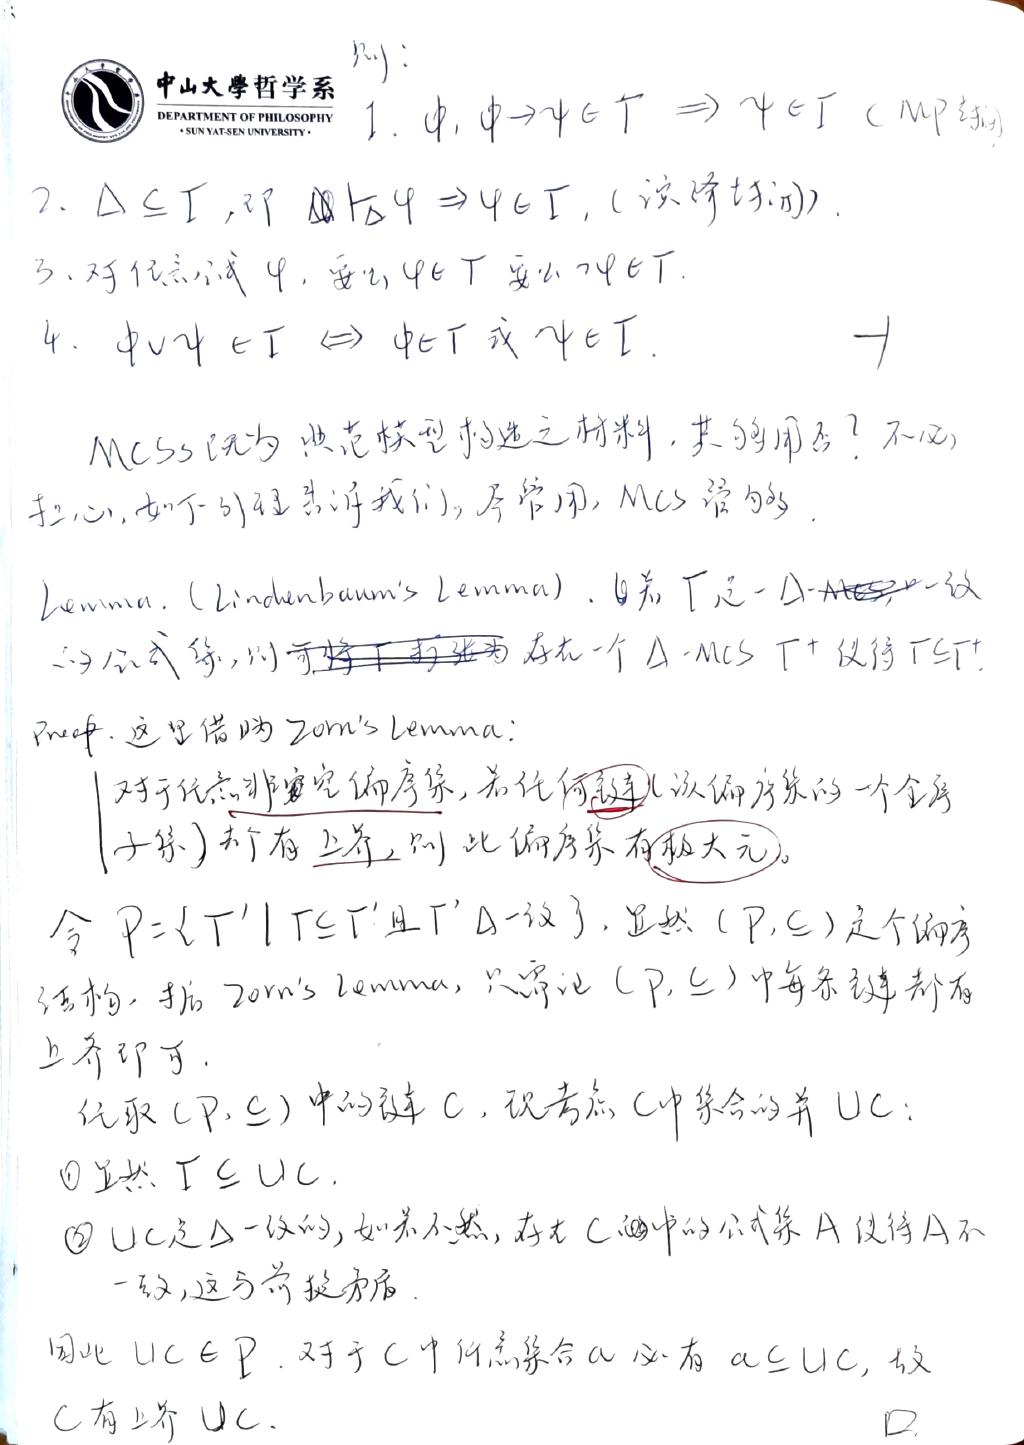 中山大學哲学系
DEPARTMENT OF PHILOSOPHY
·SUN YAT-SEN UNIVERSITY·
则:
1. φ, φ→ψ∈Γ ⇒ ψ∈Γ (MP封闭)
2. Δ⊆Γ, 即 ⊢Δφ ⇒ φ∈Γ, (该降封闭).
3. 对任意公式 φ, 要么 φ∈Γ 要么 ¬φ∈Γ.
4. φ∨ψ∈Γ ⇔ φ∈Γ 或 ψ∈Γ. ⊣
MCSs 既为典范模型构造之材料, 其够用否? 不必
担心, 如下引理告诉我们, 尽管用, MCS 管够.
Lemma. (Lindenbaum's Lemma). 若 Γ 是一 Δ-一致
的公式集, 则存在一个 Δ-MCS Γ⁺ 使得 Γ⊆Γ⁺.
Proof. 这里借助 Zorn's Lemma:
对于任意非空偏序集, 若任何链(该偏序集的一个全序
子集)都有上界, 则此偏序集有极大元。
令 P={Γ'|Γ⊆Γ'且Γ'Δ一致}. 显然 (P,⊆) 是个偏序
结构, 据 Zorn's Lemma, 只需证 (P,⊆) 中每条链都有
上界即可.
任取 (P,⊆) 中的链 C, 现考虑 C中集合的并 ∪C:
① 显然 Γ⊆∪C.
② ∪C是Δ一致的, 如若不然, 存在 C 中的公式集 A 使得 A 不
一致, 这与前提矛盾.
因此 ∪C∈P. 对于 C 中任意集合 a 必有 a⊆∪C, 故
C 有上界 ∪C. □